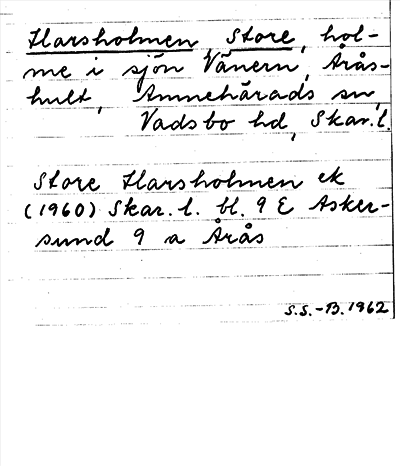 Harsholmen Store, hol-
me i sjön Vänern, Årås-
hult, Amnehärads sn,
Vadsbo hd, Skar.l.
Store Harsholmen ek
(1960) Skar. l. bl. 9 E Asker-
sund 9 a Årås
S.S.-B.1962